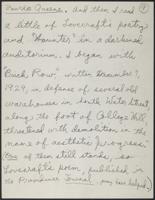 Burke Greene, and then I read
a little of Lovecraft's poetry
and "Haunter" in a darkened
auditorium. I began with
"Brick Row" written December 7,
1929, in defense of several old
warehouses in South Water Street,
along the foot of College Hill,
threatened with demolition in the
name of aesthetic "progress."
of them still stands, so
Lovecraft's poem, published in
the Providence Journal may have helped.